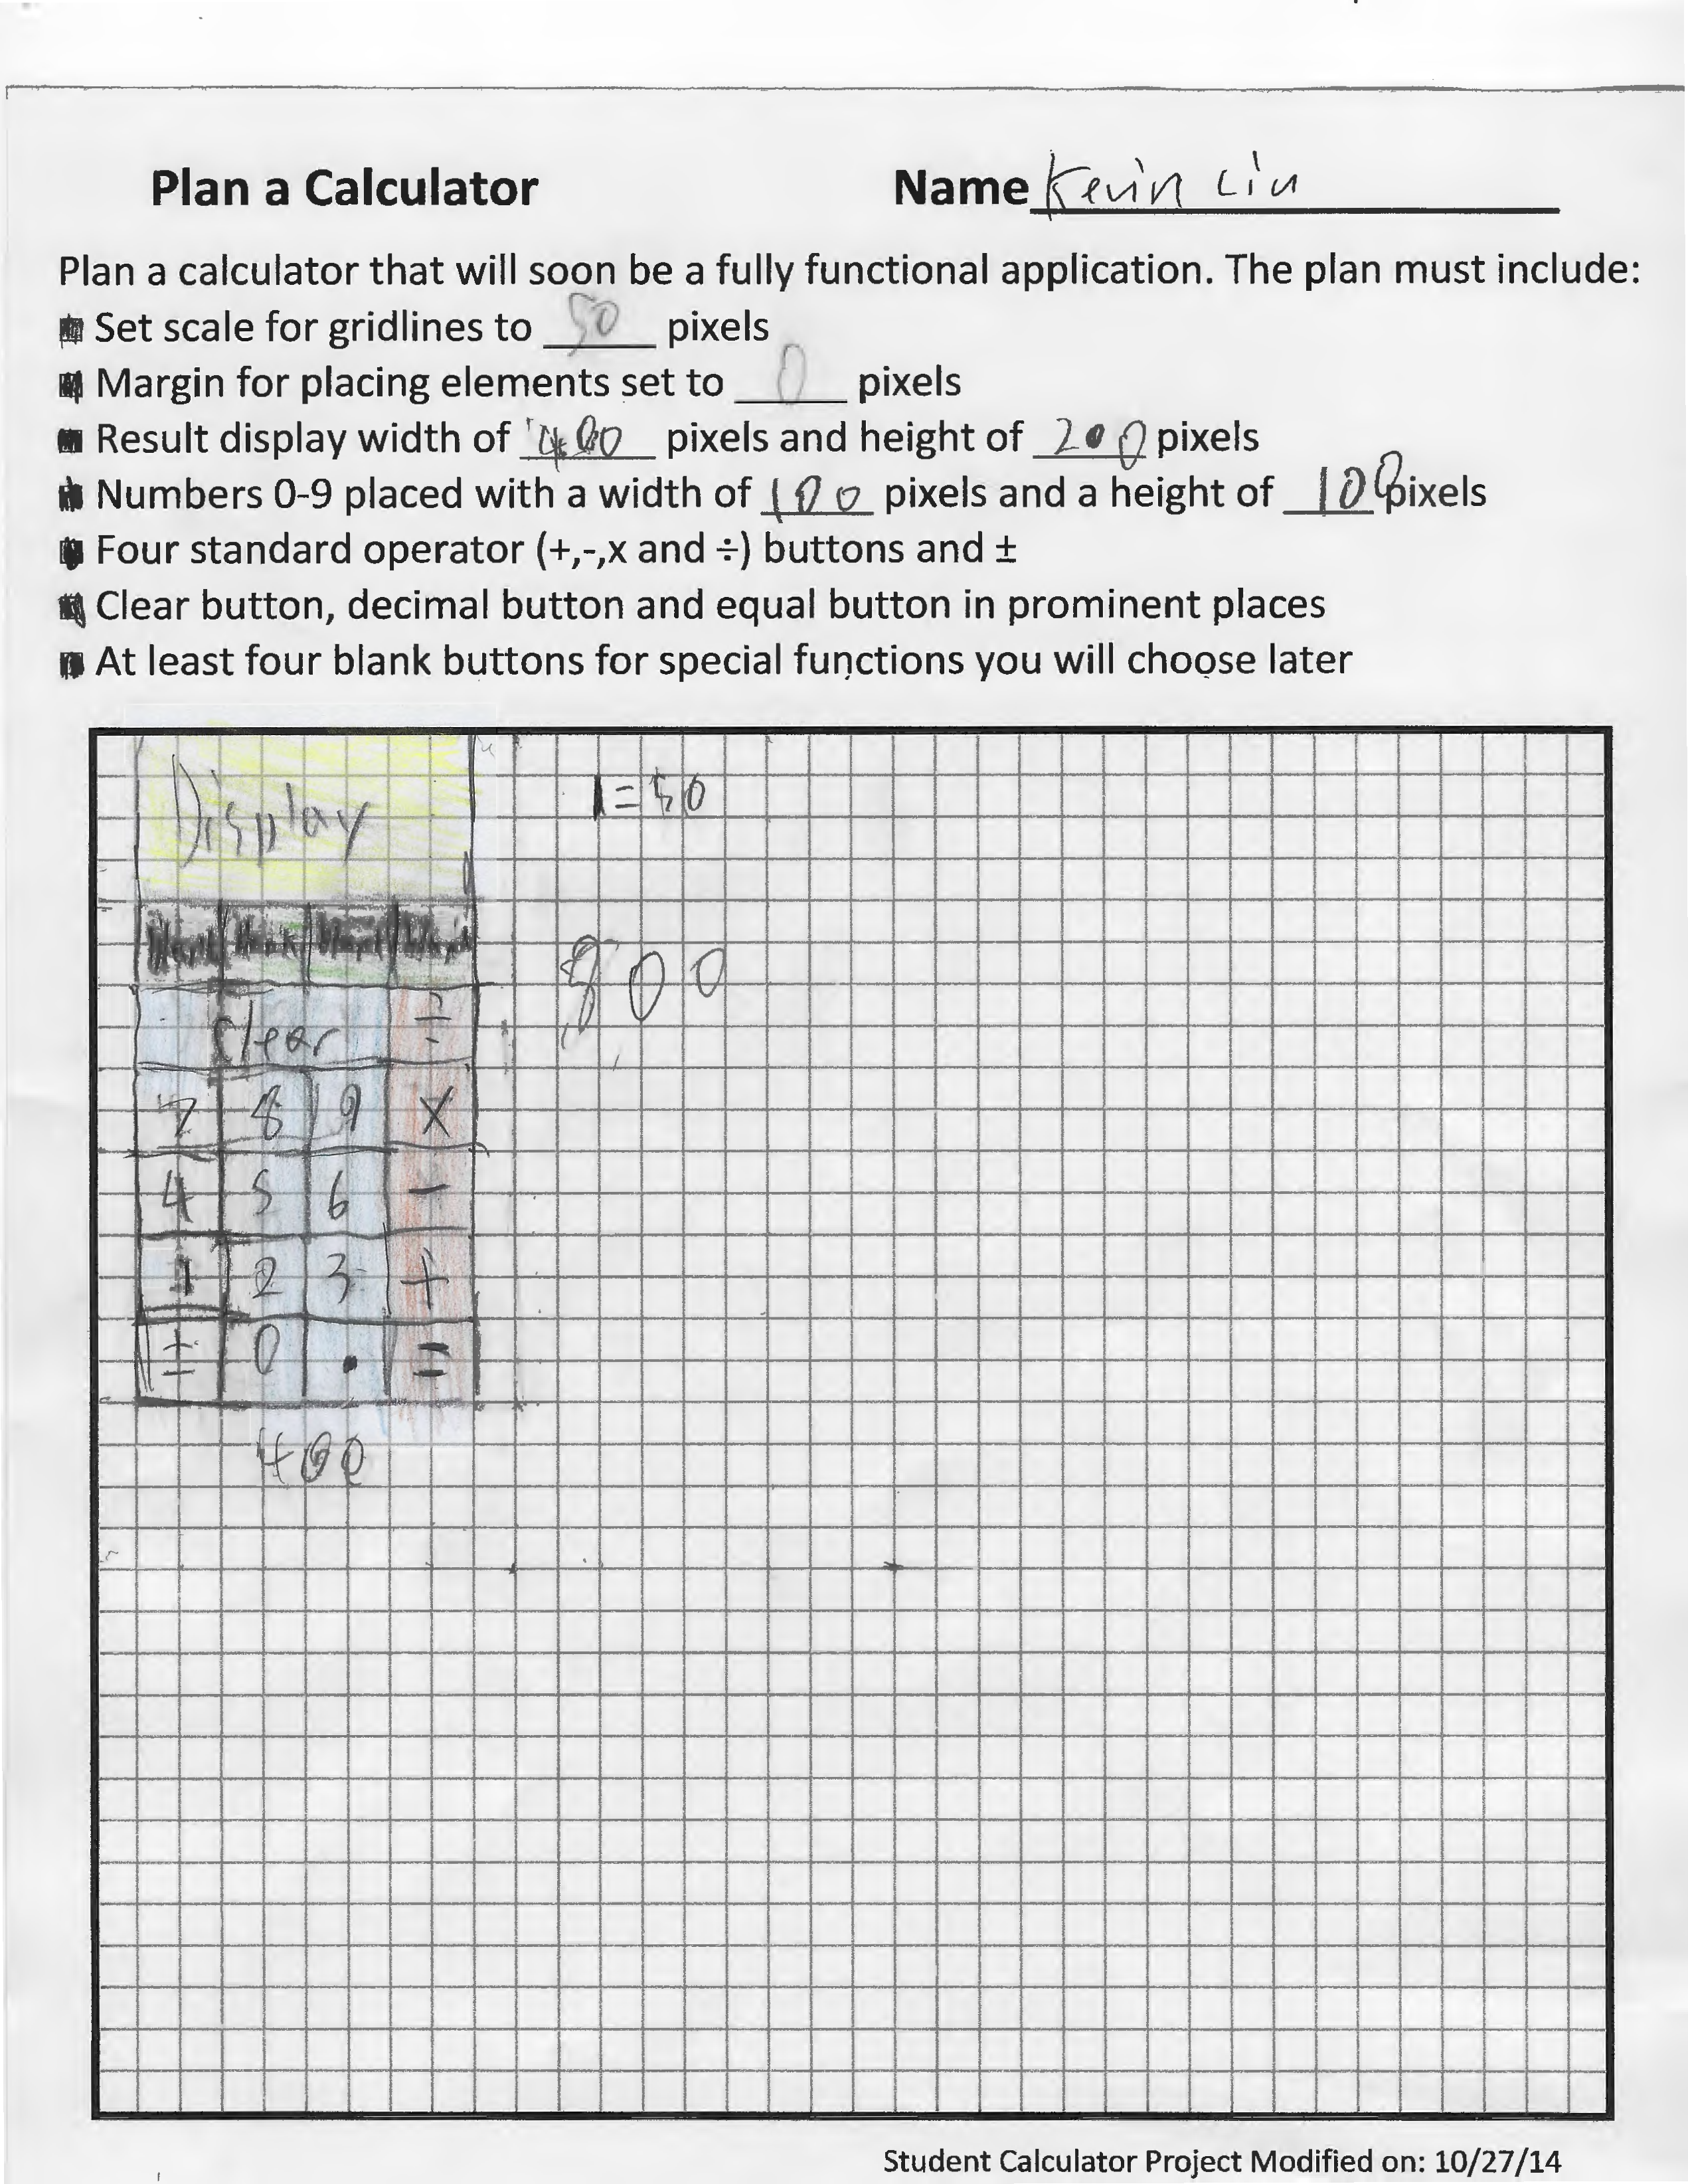 Plan a Calculator Name Kevin Liu
Plan a calculator that will soon be a fully functional application. The plan must include:
Set scale for gridlines to 50 pixels
Margin for placing elements set to 0 pixels
Result display width of 400 pixels and height of 200 pixels
Numbers 0-9 placed with a width of 100 pixels and a height of 100 pixels
Four standard operator (+,-,x and ÷) buttons and ±
Clear button, decimal button and equal button in prominent places
At least four blank buttons for special functions you will choose later
1=50
Display
Blank Blank Blank Blank
800
Clear ÷
7 8 9 X
4 5 6 -
1 2 3 +
± 0 . =
400
Student Calculator Project Modified on: 10/27/14